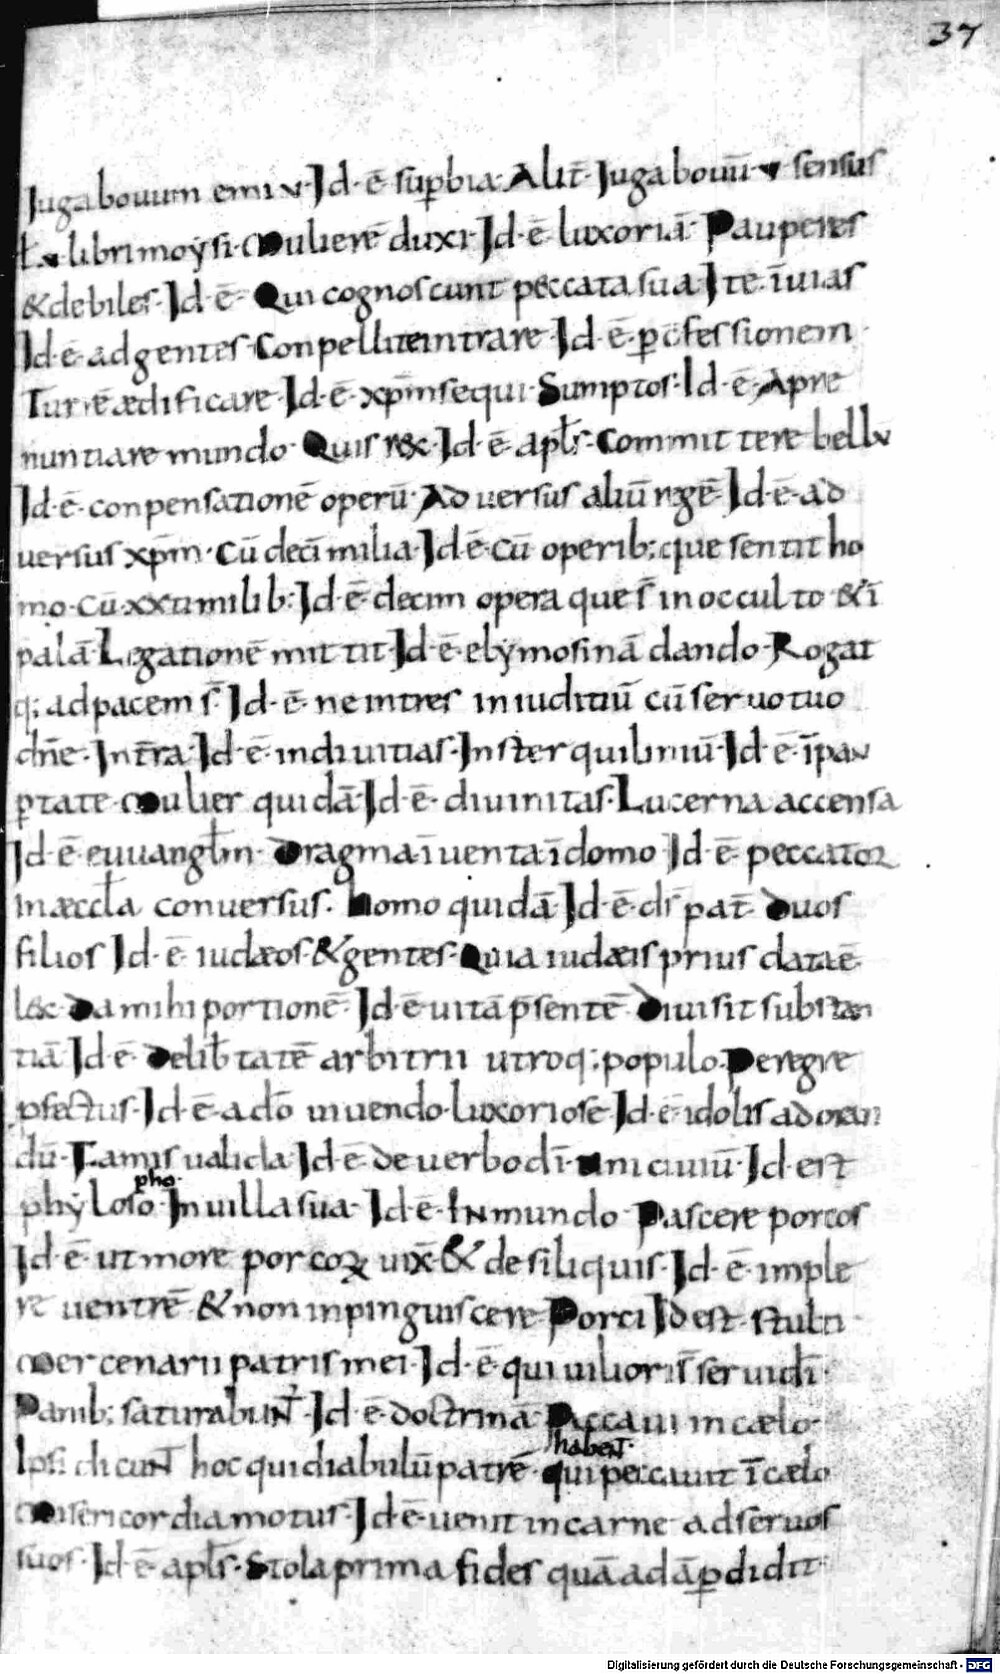 37
Juga bouum emi v· Id· ē· sup̄bia· Alit̄· Juga bouū· v· sensus
ł v· libri moẏsi· Mulierē duxi· Id· ē· luxoriā· Pauperes
& debiles· Id· ē· Qui cognoscunt peccata sua· Ite· ī uias
Id· ē· ad gentes· Conpellite intrare· Id· ē· p c̄fessionem·
Turrē ædificare· Id· ē· xp̄m sequi· Sumptos· Id· ē· Apre
nuntiare mundo· Quis rex· Id· ē· apłs· Committere bellv
Id· ē· conpensationē operū· Aduersus aliū regē· Id· ē· ad
uersus xp̄m· Cū decī milia· Id· ē· cū operib; que sentit ho
mo· cū· xxti milib; Id· ē· decim opera que s̄ in occulto & ī
palā· Legationē mittit· Id· ē· elẏmosinā dando· Rogat
q; ad pacem s̄· Id· ē· ne intres in iuditiū cū seruo tuo
dn̄e· In t̄ra· Id· ē· in diuitias· In sterquiliniū· Id· ē· ī pav
ptate· Mulier quidā· Id· ē· diuinitas· Lucerna accensa
Id· ē· euuangłm· Dragma ī uenta ī domo Id· ē· peccatoꝝ
in æccła conuersus· Homo quidā· Id· ē· ds̄ pat̄· Duos
filios Id· ē· iudæos· & gentes· Quia iudæis prius data ē·
lex· Da mihi portionē· Id· ē· uitā p̄sentē· Diuisit substan
tiā Id· ē· De lib̄tatē arbitrii utroq; populo· Peregre
pfectus· Id· ē· a dō uiuendo· luxoriose· Id· ē· idolis adoran
dū· Famis ualida· Id· ē· de uerbo dī· Uni ciuiū· Id est
pho·
phẏloso· In uilla sua· Id· ē· In mundo Pascere porcos
Id· ē· ut more porcoꝝ uix̄· & de siliquis· Id· ē· imple
re uentrē· & non inpinguiscere· Porci Id est· stulti·
Mercenarii patris mei· Id· ē· qui uilioris̄ serui dī·
Panib; saturabunt̄· Id· ē· doctrinā· Piccaui in cælo·
habent·
Ipsi dicunt hoc qui diabulū patrē· qui peccauit ī cælo
Misericordia motus· Id· ē· uenit in carne· ad seruos
suos· Id· ē· apłs· Stola prima fides quā adā pdidit·
Digitalisierung gefördert durch die Deutsche Forschungsgemeinschaft - DFG